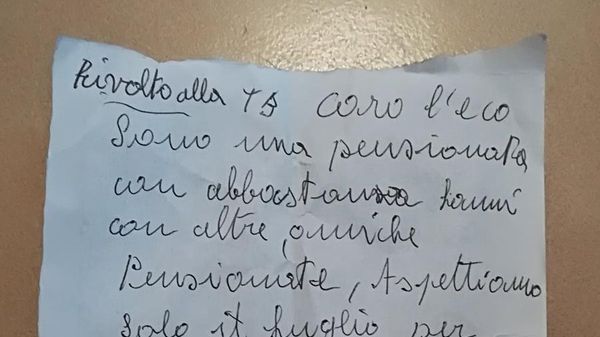 Rivolto alla TG caro l'eco
Sono una pensionata
con abbastanza hanni
con altre amiche
Pensionate, Aspettiamo
solo it luglio per